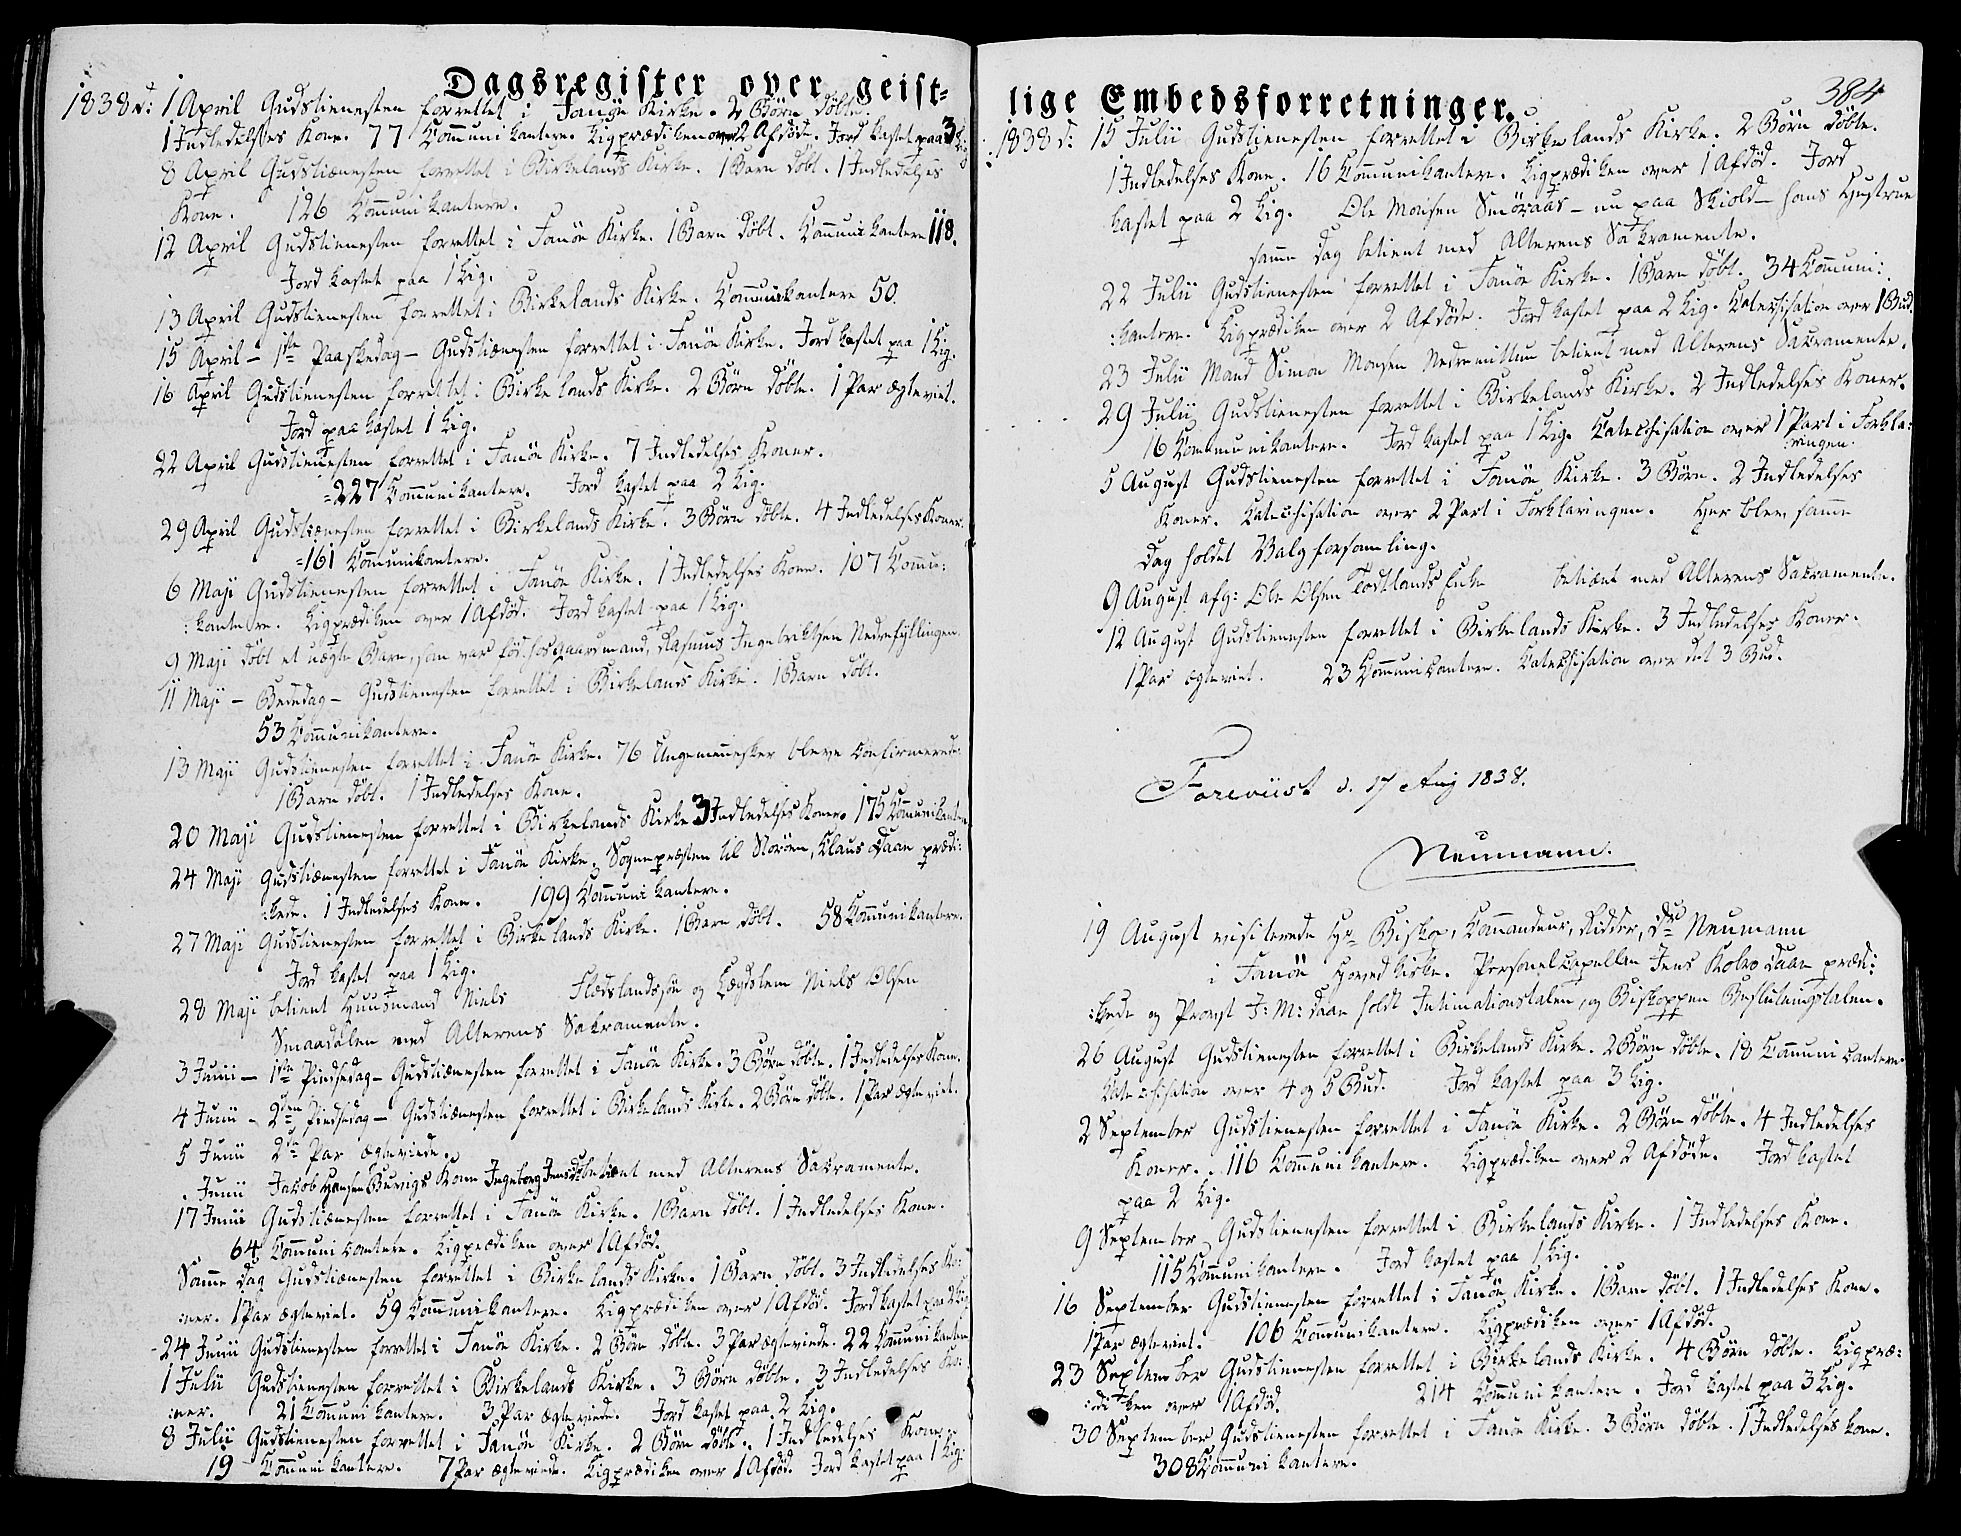 Dagsregister over geist-
1838 d: 1 April Gudstienesten forrettet i Fanöe Kirke. 2 Börn döbte.
1 Indledelses Kone. 77 Communikantere. Ligprædiken over 2 Afdöde. Jord kastet paa 3 Lig
8 April Gudstienesten forrettet i Birkelands Kirke. 1 Barn döbt. 1 Indledelses
Kone. 126 Communikantere.
12 April Gudstienesten forrettet i Fanöe Kirke. 1 Barn döbt. Communikantere 118.
Jord kastet paa 1 Lig.
13 April Gudstienesten forrettet i Birkelands Kirke. Communikantere 50.
15 April – 1ste Paaskedag – Gudstienesten forrettet i Fanöe Kirke. Jord kastet paa 1 Lig.
16 April Gudstienesten forrettet i Birkelands Kirke. 2 Börn döbte. 1 Par ægteviet.
Jord paa kastet 1 Lig.
22 April Gudstienesten forrettet i Fanöe Kirke. 7 Indledelses Koner.
=227 Communikantere. Jord kastet paa 2 Lig.
29 April Gudstienesten forrettet i Birkelands Kirke. 3 Börn döbte. 4 Indledelses Koner.
=161 Communikantere.
6 Maji Gudstienesten forrettet i Fanöe Kirke. 1 Indledelses Kone. 107 Commu:
:kantere. Ligprædiken over 1 Afdöd. Jord kastet paa 1 Lig.
9 Maji döbt et uægte Barn, som var föd hos Gaardmand, Rasmus Ingebriktsen Nedrefyllingen.
11 Maji – Bededag – Gudstienesten forrettet i Birkelands Kirke. 1 Barn döbt.
53 Communikantere.
13 Maji Gudstienesten forrettet i Fanöe Kirke. 76 Ungemennesker bleve Confirmerede.
1 Barn döbt. 1 Indledelses Kone.
20 Maji Gudstienesten forrettet i Birkelands Kirke 3 Indledelses Koner. 175 Communikantere
24 Maji Gudstienesten forrettet i Fanöe Kirke. Sognepræsten til Storöen, Claus Daae prædi:
:kede. 1 Indledelses Kone. 199 Communikantere.
27 Maji Gudstienesten forrettet i Birkelands Kirke. 1 Barn döbt. 58 Communikantere.
Jord kastet paa 1 Lig.
28 Maji betient Huusmand Niels Flædslandssön og Lægdslem Niels Olsen
Smaadalen med Alterens Sakramente.
3 Junii – 1ste Pindsedag – Gudstienesten forrettet i Fanöe Kirke. 3 Börn döbte. 1 Indledelses Kone.
4 Junii – 2den Pindsedag – Gudstienesten forrettet i Birkelands Kirke. 2 Börn döbte. 1 Par ægteviet.
5 Junii 2de Par ægteviede.
. Junii Jakob Hansen Burvigs Kone Ingeborg Jensd: betient med Alterens Sakramente.
17 Junii Gudstienesten forrettet i Fanöe Kirke. 1 Barn döbt. 1 Indledelses Kone.
64 Communicantere. Ligprædiken over 1 Afdöd.
Samme dag Gudstienesten forrettet i Birkelands Kirke. 1 Barn döbt. 3 Indledelses Ko:
:ner. 1 Par ægteviet. 59 Communikantere. Ligprædiken over 1 Afdöd. Jord kastet paa 2 Lig
24 Junii Gudstienesten forrettet i Fanöe Kirke. 2 Börn döbte. 3 Par ægteviede. 22 Communikantere
1 Julii Gudstienesten forrettet i Birkelands Kirke. 3 Börn döbte. 3 Indledelses Ko:
:ner. 21 Communikantere. 3 Par ægteviede. Jord kastet paa 2 Lig.
8 Julii Gudstienesten forrettet i Fanöe Kirke. 2 Börn döbte. 1 Indledelses Kone.
19 Communikantere. 7 Par ægteviede. Ligprædiken over 1 Afdöd. Jord kastet paa 1 Lig.
lige Embedsforretninger.
384
1838 d: 15 Julii Gudstienesten forrettet i Birkelands Kirke. 2 Börn döbte.
1 Indledelses Kone. 16 Communikantere. Ligprædiken over 1 Afdöd. Jord
kastet paa 2 Lig. Ole Monsen Smöraas – nu paa Skiold – hans Hustrue
samme dag betient med Alterens Sakramente.
22 Julii Gudstienesten forrettet i Fanöe Kirke. 1 Barn döbt. 34 Communi:
:kantere. Ligprædiken over 2 Afdöde. Jord kastet paa 2 Lig. Catechisation over 1 Bud.
23 Julii Mand Simon Monsen Nedremittun betient med Alterens Sakramente.
29 Julii Gudstienesten forrettet i Birkelands Kirke. 2 Indledelses Koner.
16 Communikantere. Jord kastet paa 1 Lig. Catechisation over 1 Part i Forkla:
ringen.
5 August Gudstienesten forrettet i Fanöe Kirke. 3 Börn. 2 Indledelses
Koner. Catechisation over 2 Part i Forklaringen. Her blev samme
Dag holdet Valgforsamling.
9 August afg: Ole Olsen Tostlands Enke betient med Alterens Sakramente.
12 August Gudstienesten forrettet i Birkelands Kirke. 3 Indledelses Koner.
1 Par ægteviet. 23 Communicantere. Catechisation over det 3 Bud.
Foreviist d. 17 Aug 1838.
Neumann.
19 August visiterede Hr Biskop, Commandeur, Ridder, Dr Neumann
i Fanöe Hovedkirke. Personelcapellan Jens Kobro Daae prædi:
:kede og Provst J: M: Daae holdt Intimationstalen, og Biskoppen Beslutningstalen.
26 August Gudstienesten forrettet i Birkelands Kirke. 2 Börn döbte. 18 Communicantere
Catechisation over 4 og 5 Bud. Jord kastet paa 3 Lig.
2 September Gudstienesten forrettet i Fanöe Kirke. 2 Börn döbte. 4 Indledelses
Koner. 116 Communikantere. Ligprædiken over 2 Afdöde. Jord kastet
paa 2 Lig.
9 September Gudstienesten forrettet i Birkelands Kirke. 1 Indledelses Kone.
115 Communikantere. Jord kastet paa 1 Lig.
16 September Gudstienesten forrettet i Fanöe Kirke. 1 Barn döbt. 1 Indledelses Kone.
1 Par ægteviet. 106 Communikantere. Ligprædiken over 1 Afdöd.
23 September Gudstienesten forrettet i Birkelands Kirke. 4 Börn döbte. Ligpræ:
:diken over 1 Afdöd. 214 Communikantere. Jord kastet paa 3 Lig.
30 September Gudstienesten forrettet i Fanöe Kirke. 3 Börn döbte. 1 Indledelses Kone.
308 Communikantere.